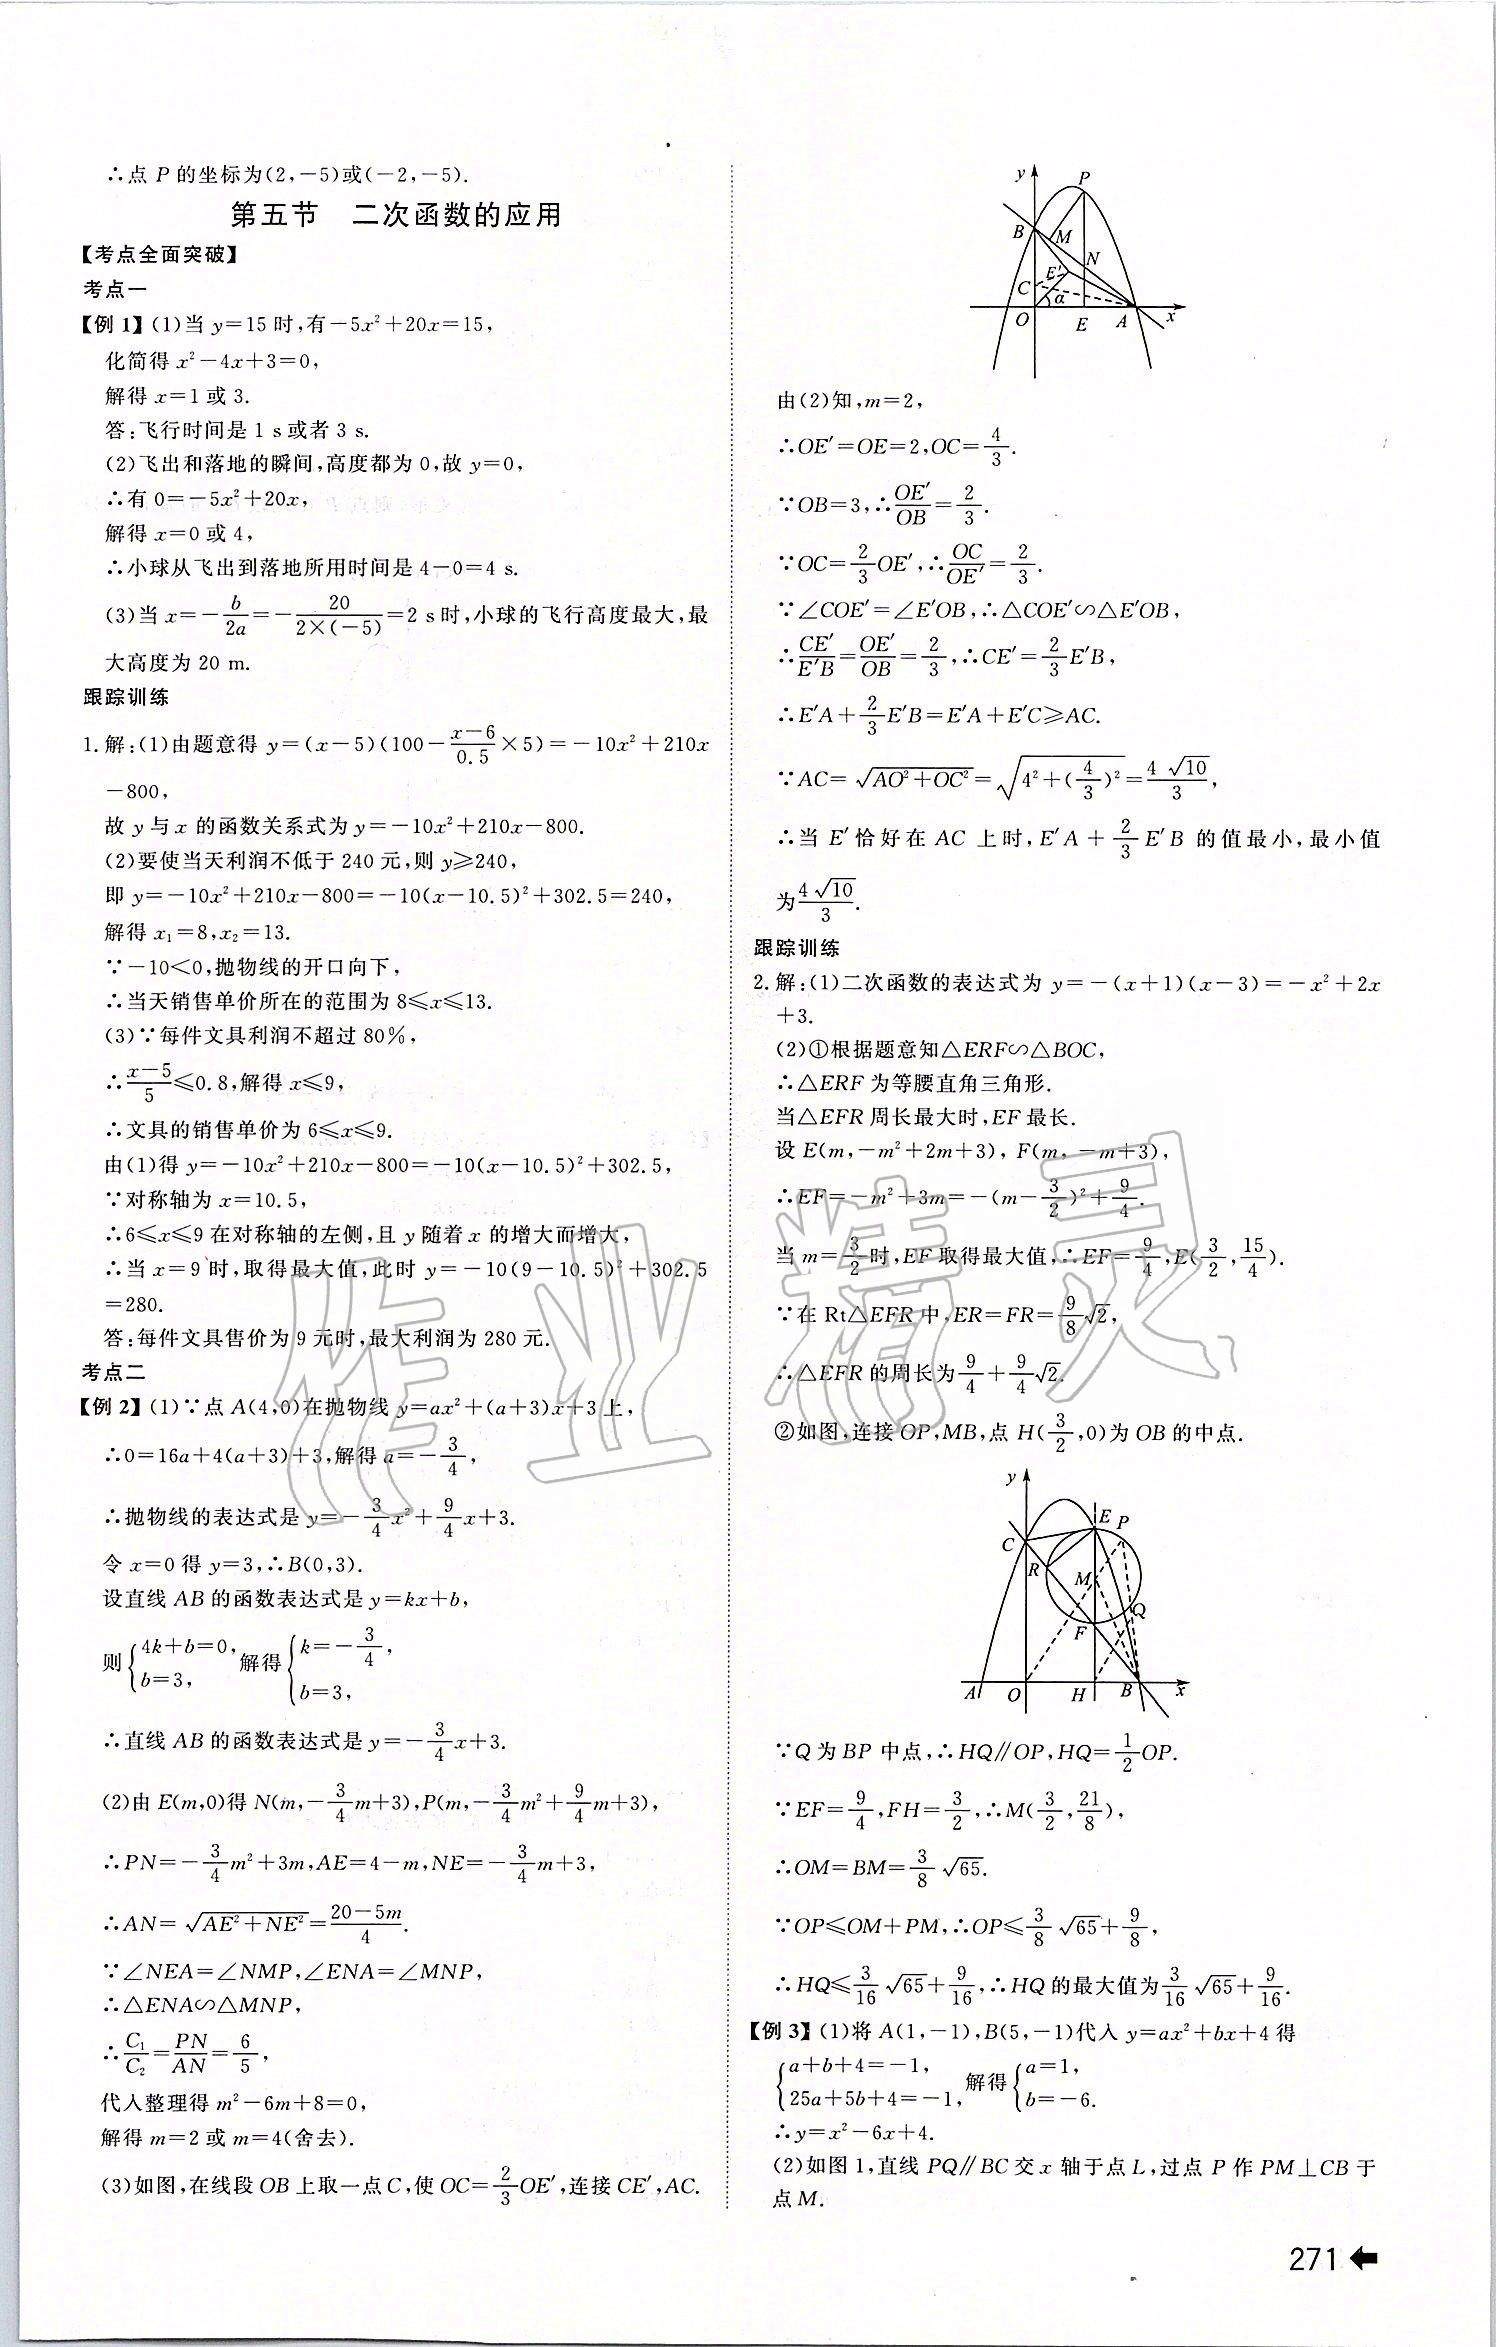 ∴点 P 的坐标为(2,−5)或(−2,−5).
第五节 二次函数的应用
【考点全面突破】
考点一
【例 1】(1)当 y=15 时,有−5x²+20x=15,
化简得 x²−4x+3=0,
解得 x=1 或 3.
答:飞行时间是 1 s 或者 3 s.
(2)飞出和落地的瞬间,高度都为 0,故 y=0,
∴有 0=−5x²+20x,
解得 x=0 或 4,
∴小球从飞出到落地所用时间是 4−0=4 s.
(3)当 x=−b/2a=−20/2×(−5)=2 s 时,小球的飞行高度最大,最
大高度为 20 m.
跟踪训练
1.解:(1)由题意得 y=(x−5)(100−(x−6)/0.5×5)=−10x²+210x
−800,
故 y 与 x 的函数关系式为 y=−10x²+210x−800.
(2)要使当天利润不低于 240 元,则 y≥240,
即 y=−10x²+210x−800=−10(x−10.5)²+302.5=240,
解得 x₁=8,x₂=13.
∵−10<0,抛物线的开口向下,
∴当天销售单价所在的范围为 8≤x≤13.
(3)∵每件文具利润不超过 80%,
∴(x−5)/5≤0.8,解得 x≤9,
∴文具的销售单价为 6≤x≤9.
由(1)得 y=−10x²+210x−800=−10(x−10.5)²+302.5,
∵对称轴为 x=10.5,
∴6≤x≤9 在对称轴的左侧,且 y 随着 x 的增大而增大,
∴当 x=9 时,取得最大值,此时 y=−10(9−10.5)²+302.5
=280.
答:每件文具售价为 9 元时,最大利润为 280 元.
考点二
【例 2】(1)∵点 A(4,0)在抛物线 y=ax²+(a+3)x+3 上,
∴0=16a+4(a+3)+3,解得 a=−3/4,
∴抛物线的表达式是 y=−3/4x²+9/4x+3.
令 x=0 得 y=3,∴B(0,3).
设直线 AB 的函数表达式是 y=kx+b,
则{4k+b=0, b=3, 解得{k=−3/4, b=3,
∴直线 AB 的函数表达式是 y=−3/4x+3.
(2)由 E(m,0)得 N(m,−3/4m+3),P(m,−3/4m²+9/4m+3),
∴PN=−3/4m²+3m,AE=4−m,NE=−3/4m+3,
∴AN=√(AE²+NE²)=(20−5m)/4.
∵∠NEA=∠NMP,∠ENA=∠MNP,
∴△ENA∽△MNP,
∴C₁/C₂=PN/AN=6/5,
代入整理得 m²−6m+8=0,
解得 m=2 或 m=4(舍去).
(3)如图,在线段 OB 上取一点 C,使 OC=2/3OE′,连接 CE′,AC.
y P B M N E′ C α O E A x
由(2)知,m=2,
∴OE′=OE=2,OC=4/3.
∵OB=3,∴OE′/OB=2/3.
∵OC=2/3OE′,∴OC/OE′=2/3.
∵∠COE′=∠E′OB,∴△COE′∽△E′OB,
∴CE′/E′B=OE′/OB=2/3,∴CE′=2/3E′B,
∴E′A+2/3E′B=E′A+E′C≥AC.
∵AC=√(AO²+OC²)=√(4²+(4/3)²)=4√10/3,
∴当 E′ 恰好在 AC 上时,E′A+2/3E′B 的值最小,最小值
为4√10/3.
跟踪训练
2.解:(1)二次函数的表达式为 y=−(x+1)(x−3)=−x²+2x
+3.
(2)①根据题意知△ERF∽△BOC,
∴△ERF 为等腰直角三角形.
当△EFR 周长最大时,EF 最长.
设 E(m,−m²+2m+3), F(m,−m+3),
∴EF=−m²+3m=−(m−3/2)²+9/4.
当 m=3/2时,EF 取得最大值,∴EF=9/4,E(3/2,15/4).
∵在 Rt△EFR 中,ER=FR=9/8√2,
∴△EFR 的周长为9/4+9/4√2.
②如图,连接 OP,MB,点 H(3/2,0)为 OB 的中点.
y E P C R M Q F A O H B x
∵Q 为 BP 中点,∴HQ∥OP,HQ=1/2OP.
∵EF=9/4,FH=3/2,∴M(3/2,21/8),
∴OM=BM=3/8√65.
∵OP≤OM+PM,∴OP≤3/8√65+9/8,
∴HQ≤3/16√65+9/16,∴HQ 的最大值为3/16√65+9/16.
【例 3】(1)将 A(1,−1),B(5,−1)代入 y=ax²+bx+4 得
{a+b+4=−1, 25a+5b+4=−1, 解得{a=1, b=−6.
∴y=x²−6x+4.
(2)如图 1,直线 PQ∥BC 交 x 轴于点 L,过点 P 作 PM⊥CB 于
点 M.
271
作业精灵